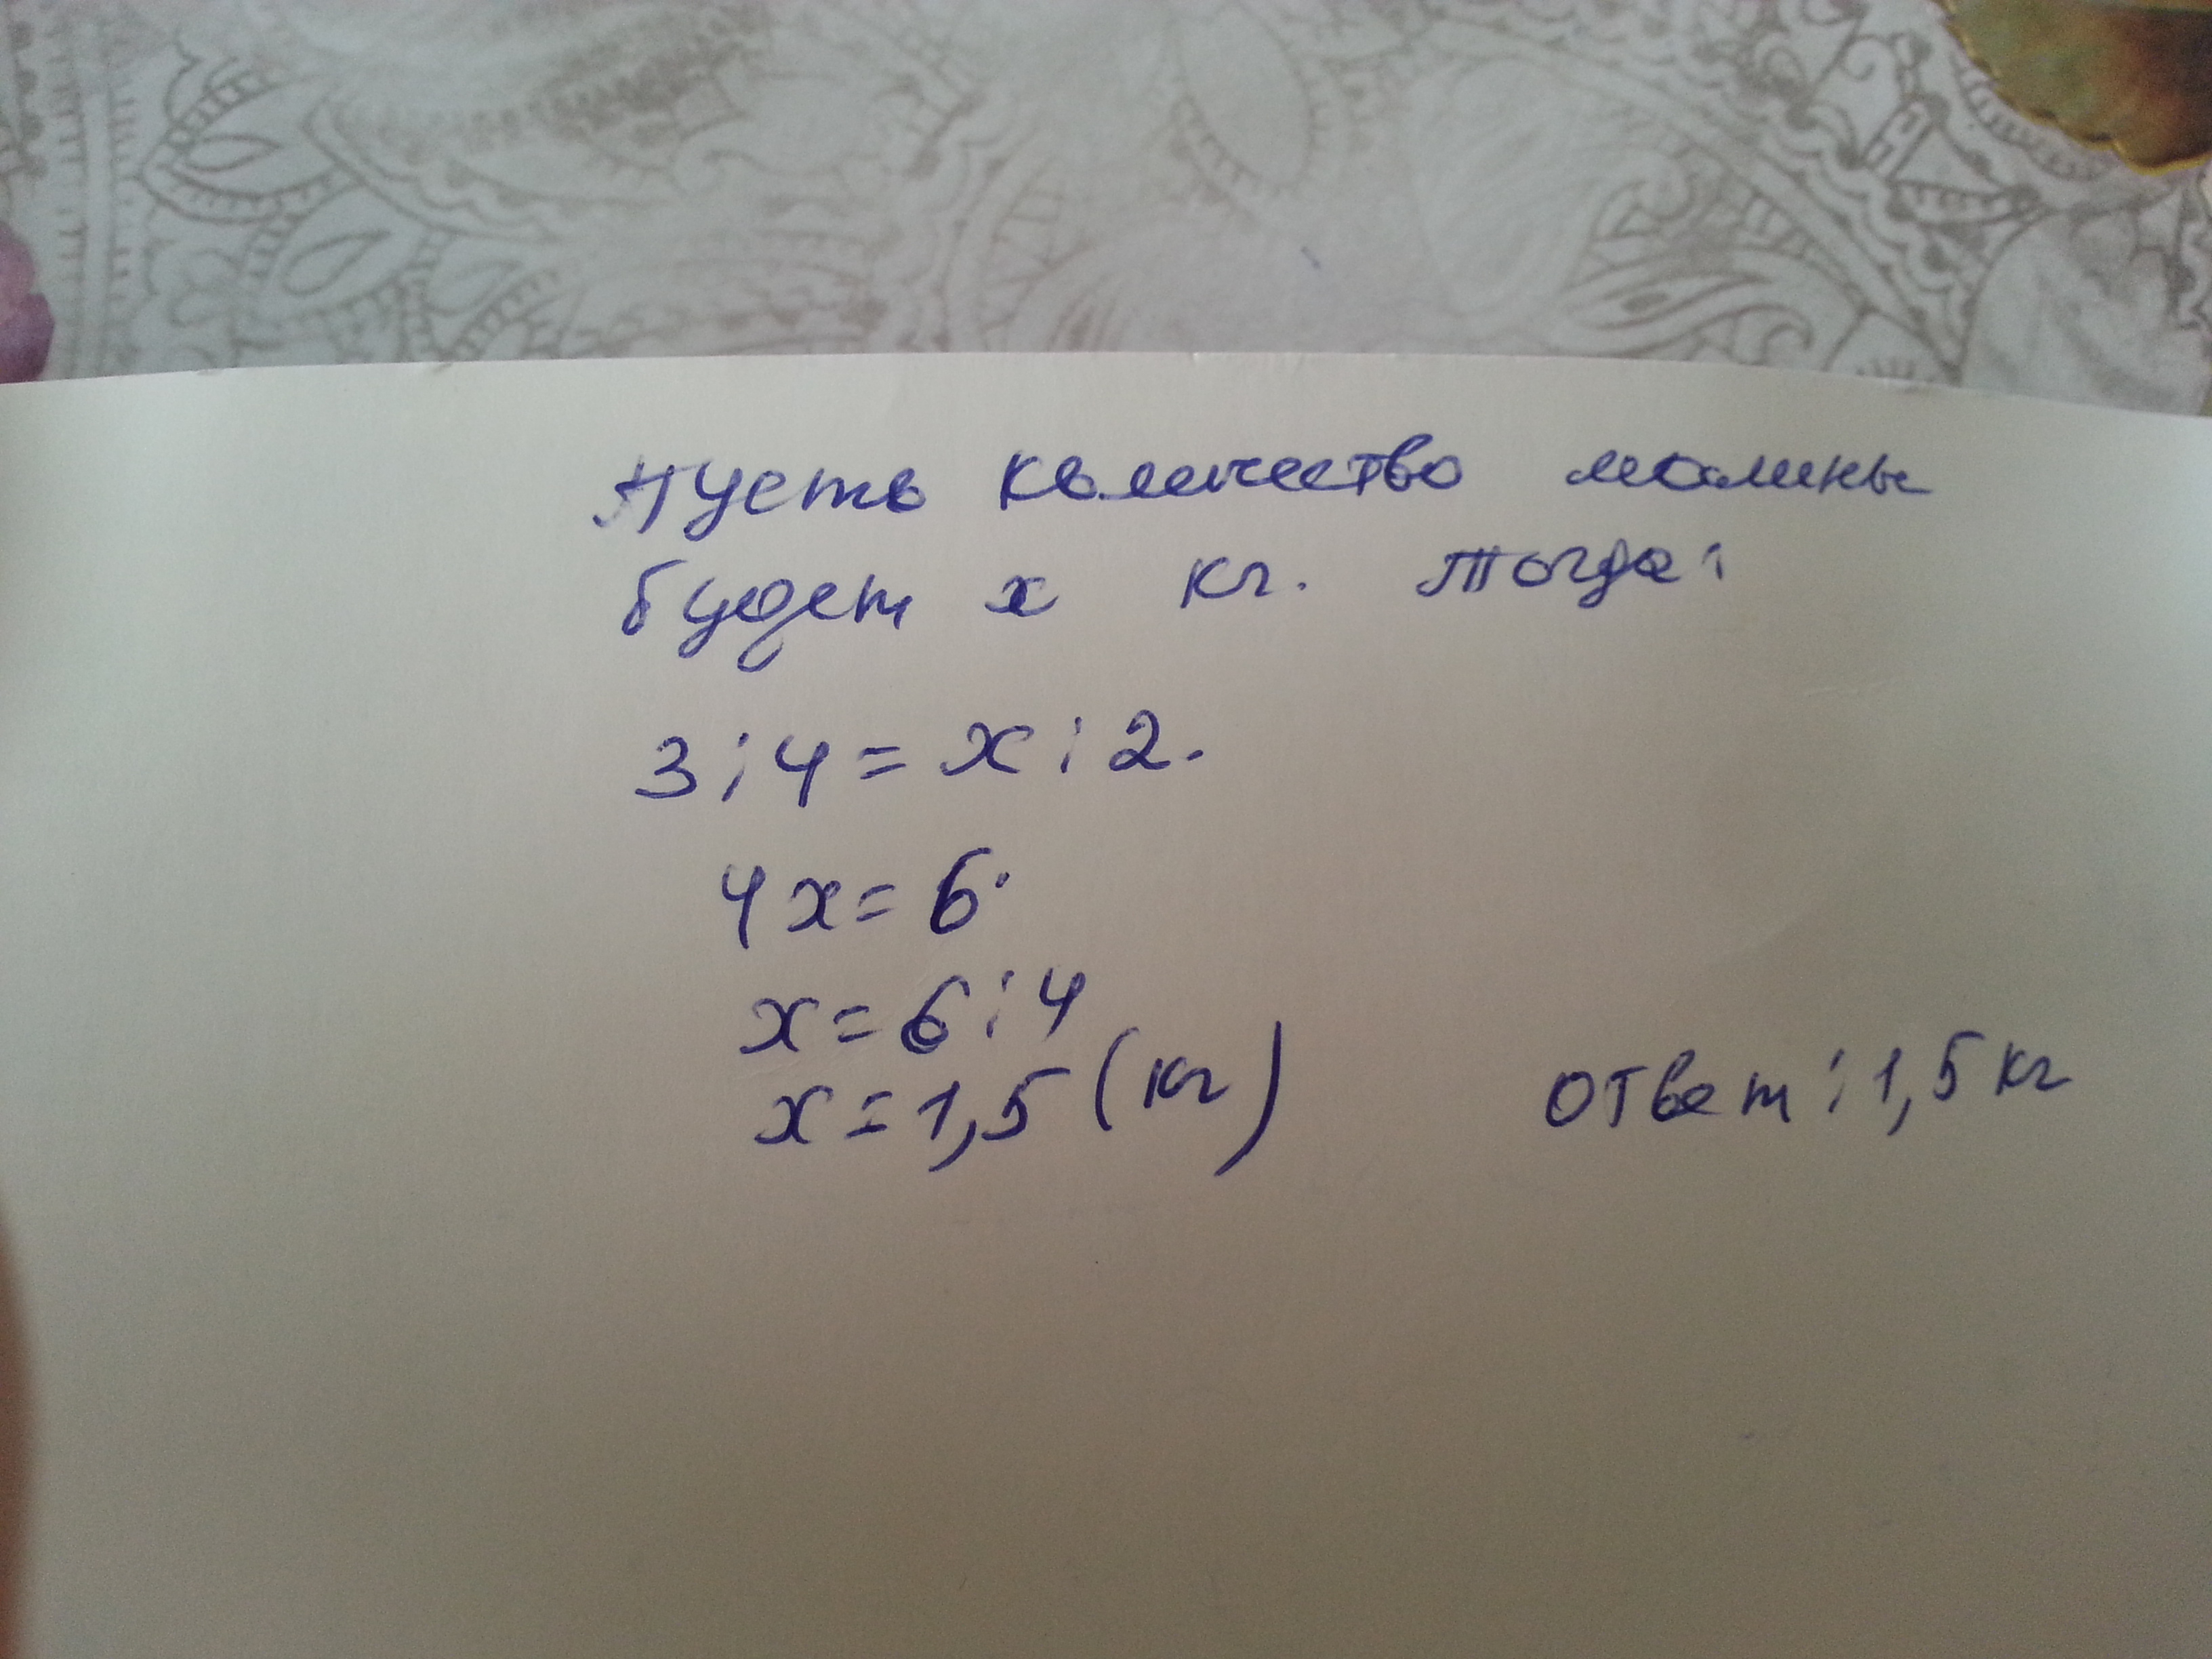 Пусть количество малины
будет х кг. Тогда:
3 : 4 = х : 2.
4х = 6.
х = 6 : 4
х = 1,5 (кг)
Ответ : 1,5 кг